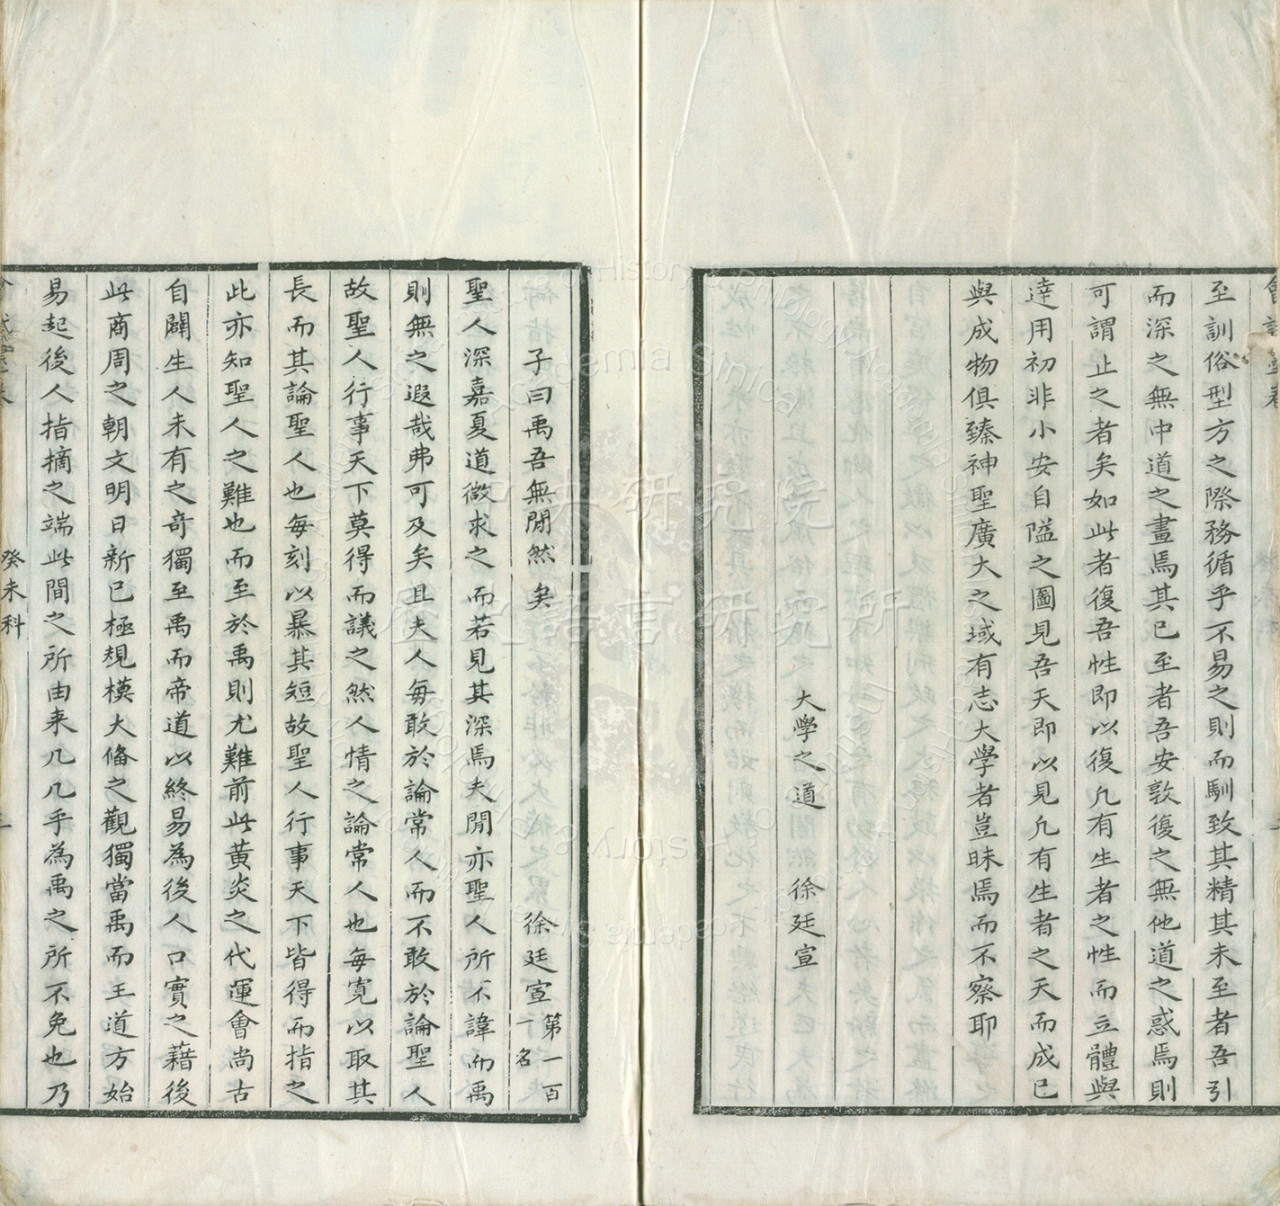 至訓俗型方之際務循乎不易之則而馴致其精其未至者吾引
而深之無中道之畫焉其已至者吾安敦復之無他道之惑焉則
可謂止之者矣如此者復吾性即以復凢有生者之性而立體與
達用初非小安自隘之圖見吾天即以見凢有生者之天而成已
與成物俱臻神聖廣大之域有志大學者豈昧焉而不察耶
大學之道 徐廷宣
子曰禹吾無閒然矣 徐廷宣 第一百
十名
聖人深嘉夏道微求之而若見其深焉夫閒亦聖人所不諱而禹
則無之遐哉弗可及矣且夫人每敢於論常人而不敢於論聖人
故聖人行事天下莫得而議之然人情之論常人也每寬以取其
長而其論聖人也每刻以暴其短故聖人行事天下皆得而指之
此亦知聖人之難也而至於禹則尤難前此黃炎之代運會尚古
自闢生人未有之奇獨至禹而帝道以終易為後人口實之藉後
此商周之朝文明日新已極規模大俻之觀獨當禹而王道方始
易起後人指摘之端此間之所由来几几乎為禹之所不免也乃
癸未科
中央研究院
歷史語言研究所